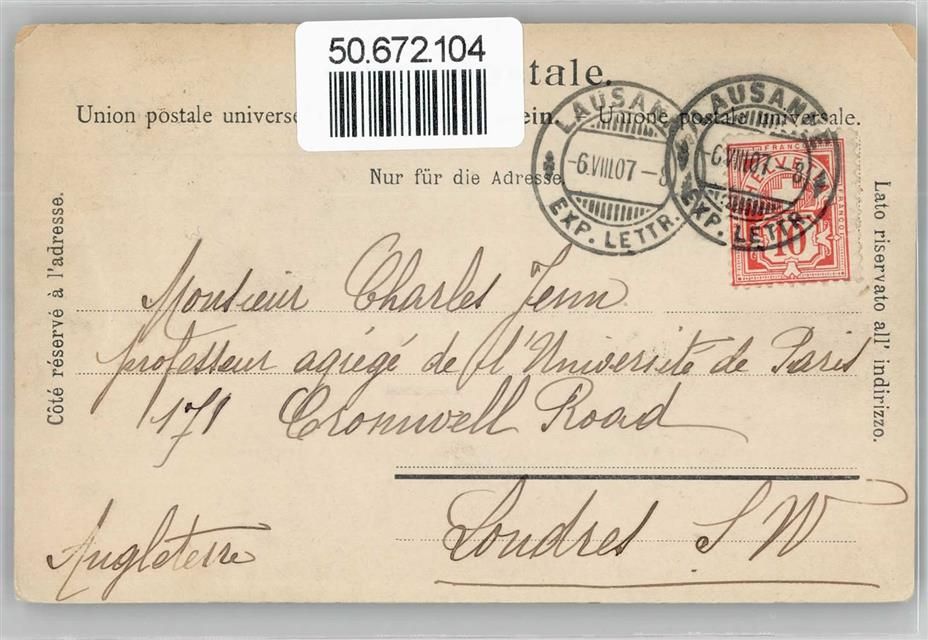 50.672.104
tale.
Union postale universe ein. - Unione postale universale.
Nur für die Adresse
Côté réservé à l'adresse.
Lato riservato all' indirizzo.
LAUSANNE
-6.VIII.07-8
EXP. LETTR.
LAUSANNE
-6.VIII.07-8
EXP. LETTR.
FRANCO
HELVETIA
10
FRANCO
Monsieur Charles Jenn
professeur agrégé de l'Université de Paris
171 Cromwell Road
Londres S W
Angleterre